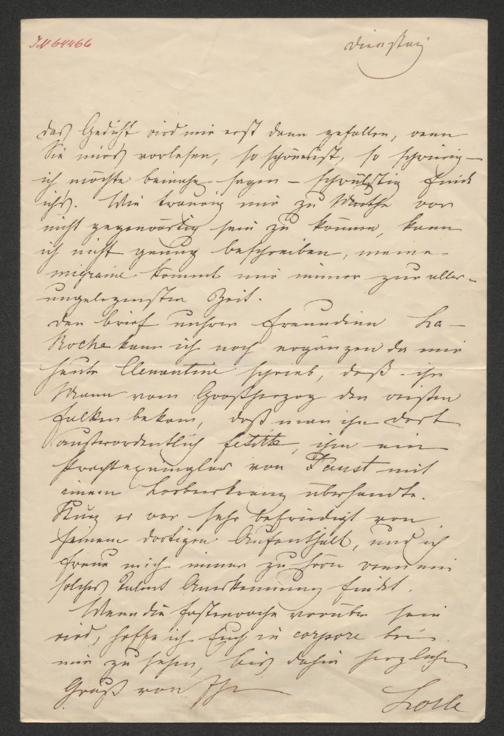 I.N 64466
Dienstag
Das Gedicht wird mir erst dann gefallen, wenn
Sie mirs vorlesen, so schön ist, so schwierig –
ich möchte beinahe sagen – schwülstig finde
ichs. Wie traurig mir zu Muthe war
nicht gegenwärtig sein zu können, kann
ich nicht genug beschreiben, meine
migraine kommt mir immer zur aller-
ungelegensten Zeit.
Den Brief unsrer Freundin La-
Roche kann ich noch ergänzen da mir
heute Clementine schrieb, daß ihr
Mann vom Großherzog den weißen
Falken bekam, daß man ihn dort
ausserordentlich fetirte, ihm ein
Prachtexemplar von Faust mit
einem Lorbeerkranz übersandte.
Kurz er war sehr befriedigt von
seinem dortigen Aufenthalt, und ich
freue mich immer zu hören wenn ein
solches Talent Anerkennung findet.
Wenn die Fastenwoche vorüber sein
wird, hoffe ich Euch in corpore bei
mir zu sehen, bis dahin herzliche
Grüße von Ihr